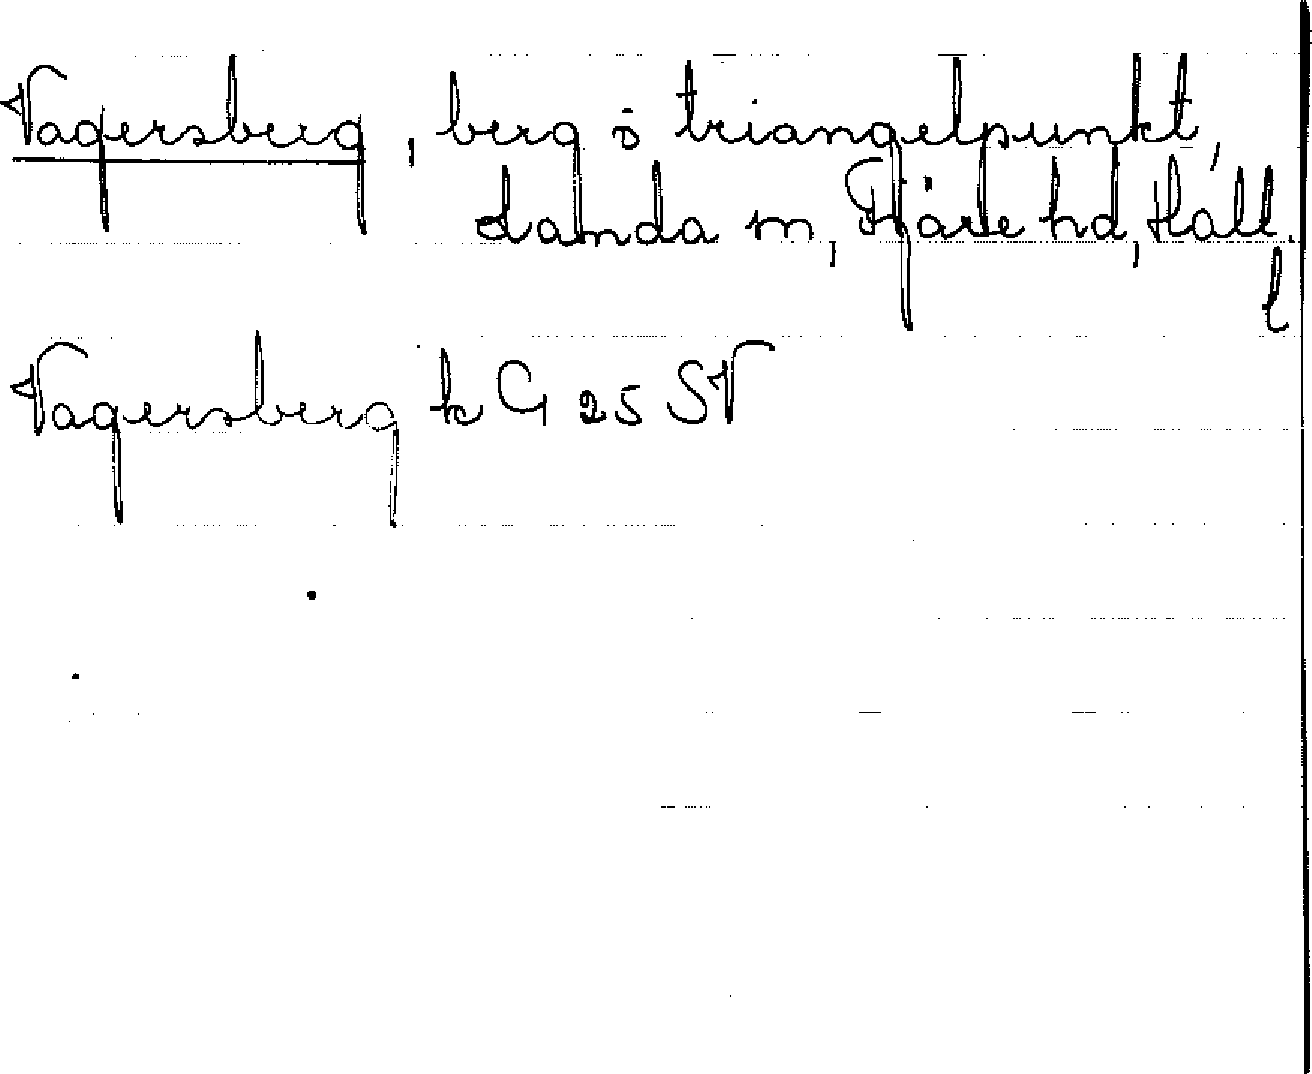 Vagersberg, berg o triangelpunkt,
Landa sn, Fjäre hd, Hall.
l
Vagersberg k G 25 SV